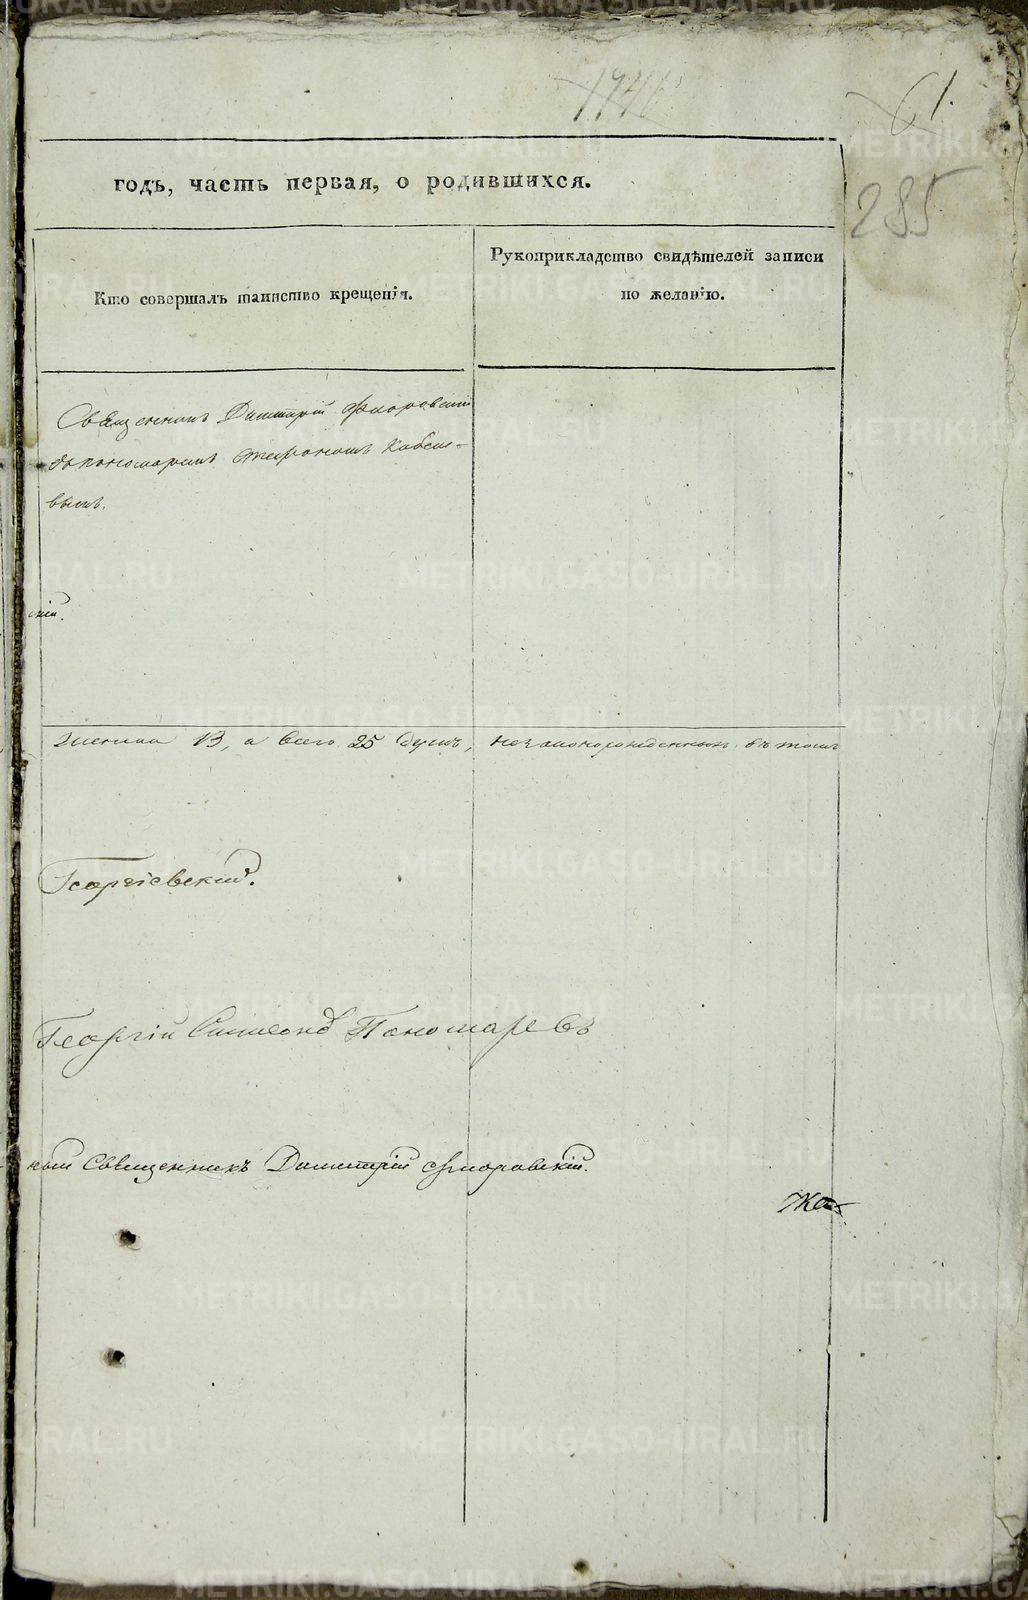 61.
285
годъ, часть первая, о родившихся.
Кто совершалъ таинство крещенія.
Рукоприкладство свидѣтелей записи
по желанію.
Священникъ Димитрій Флоровскій
съ пономаремъ
вымъ.
женска 13, а всего 25 душъ, незаконорожденныхъ въ томъ
Георгіевскій.
Георгій Симеонъ Пономаревъ
Священникъ Димитрій Флоровскій.
METRIKI.GASO-URAL.RU